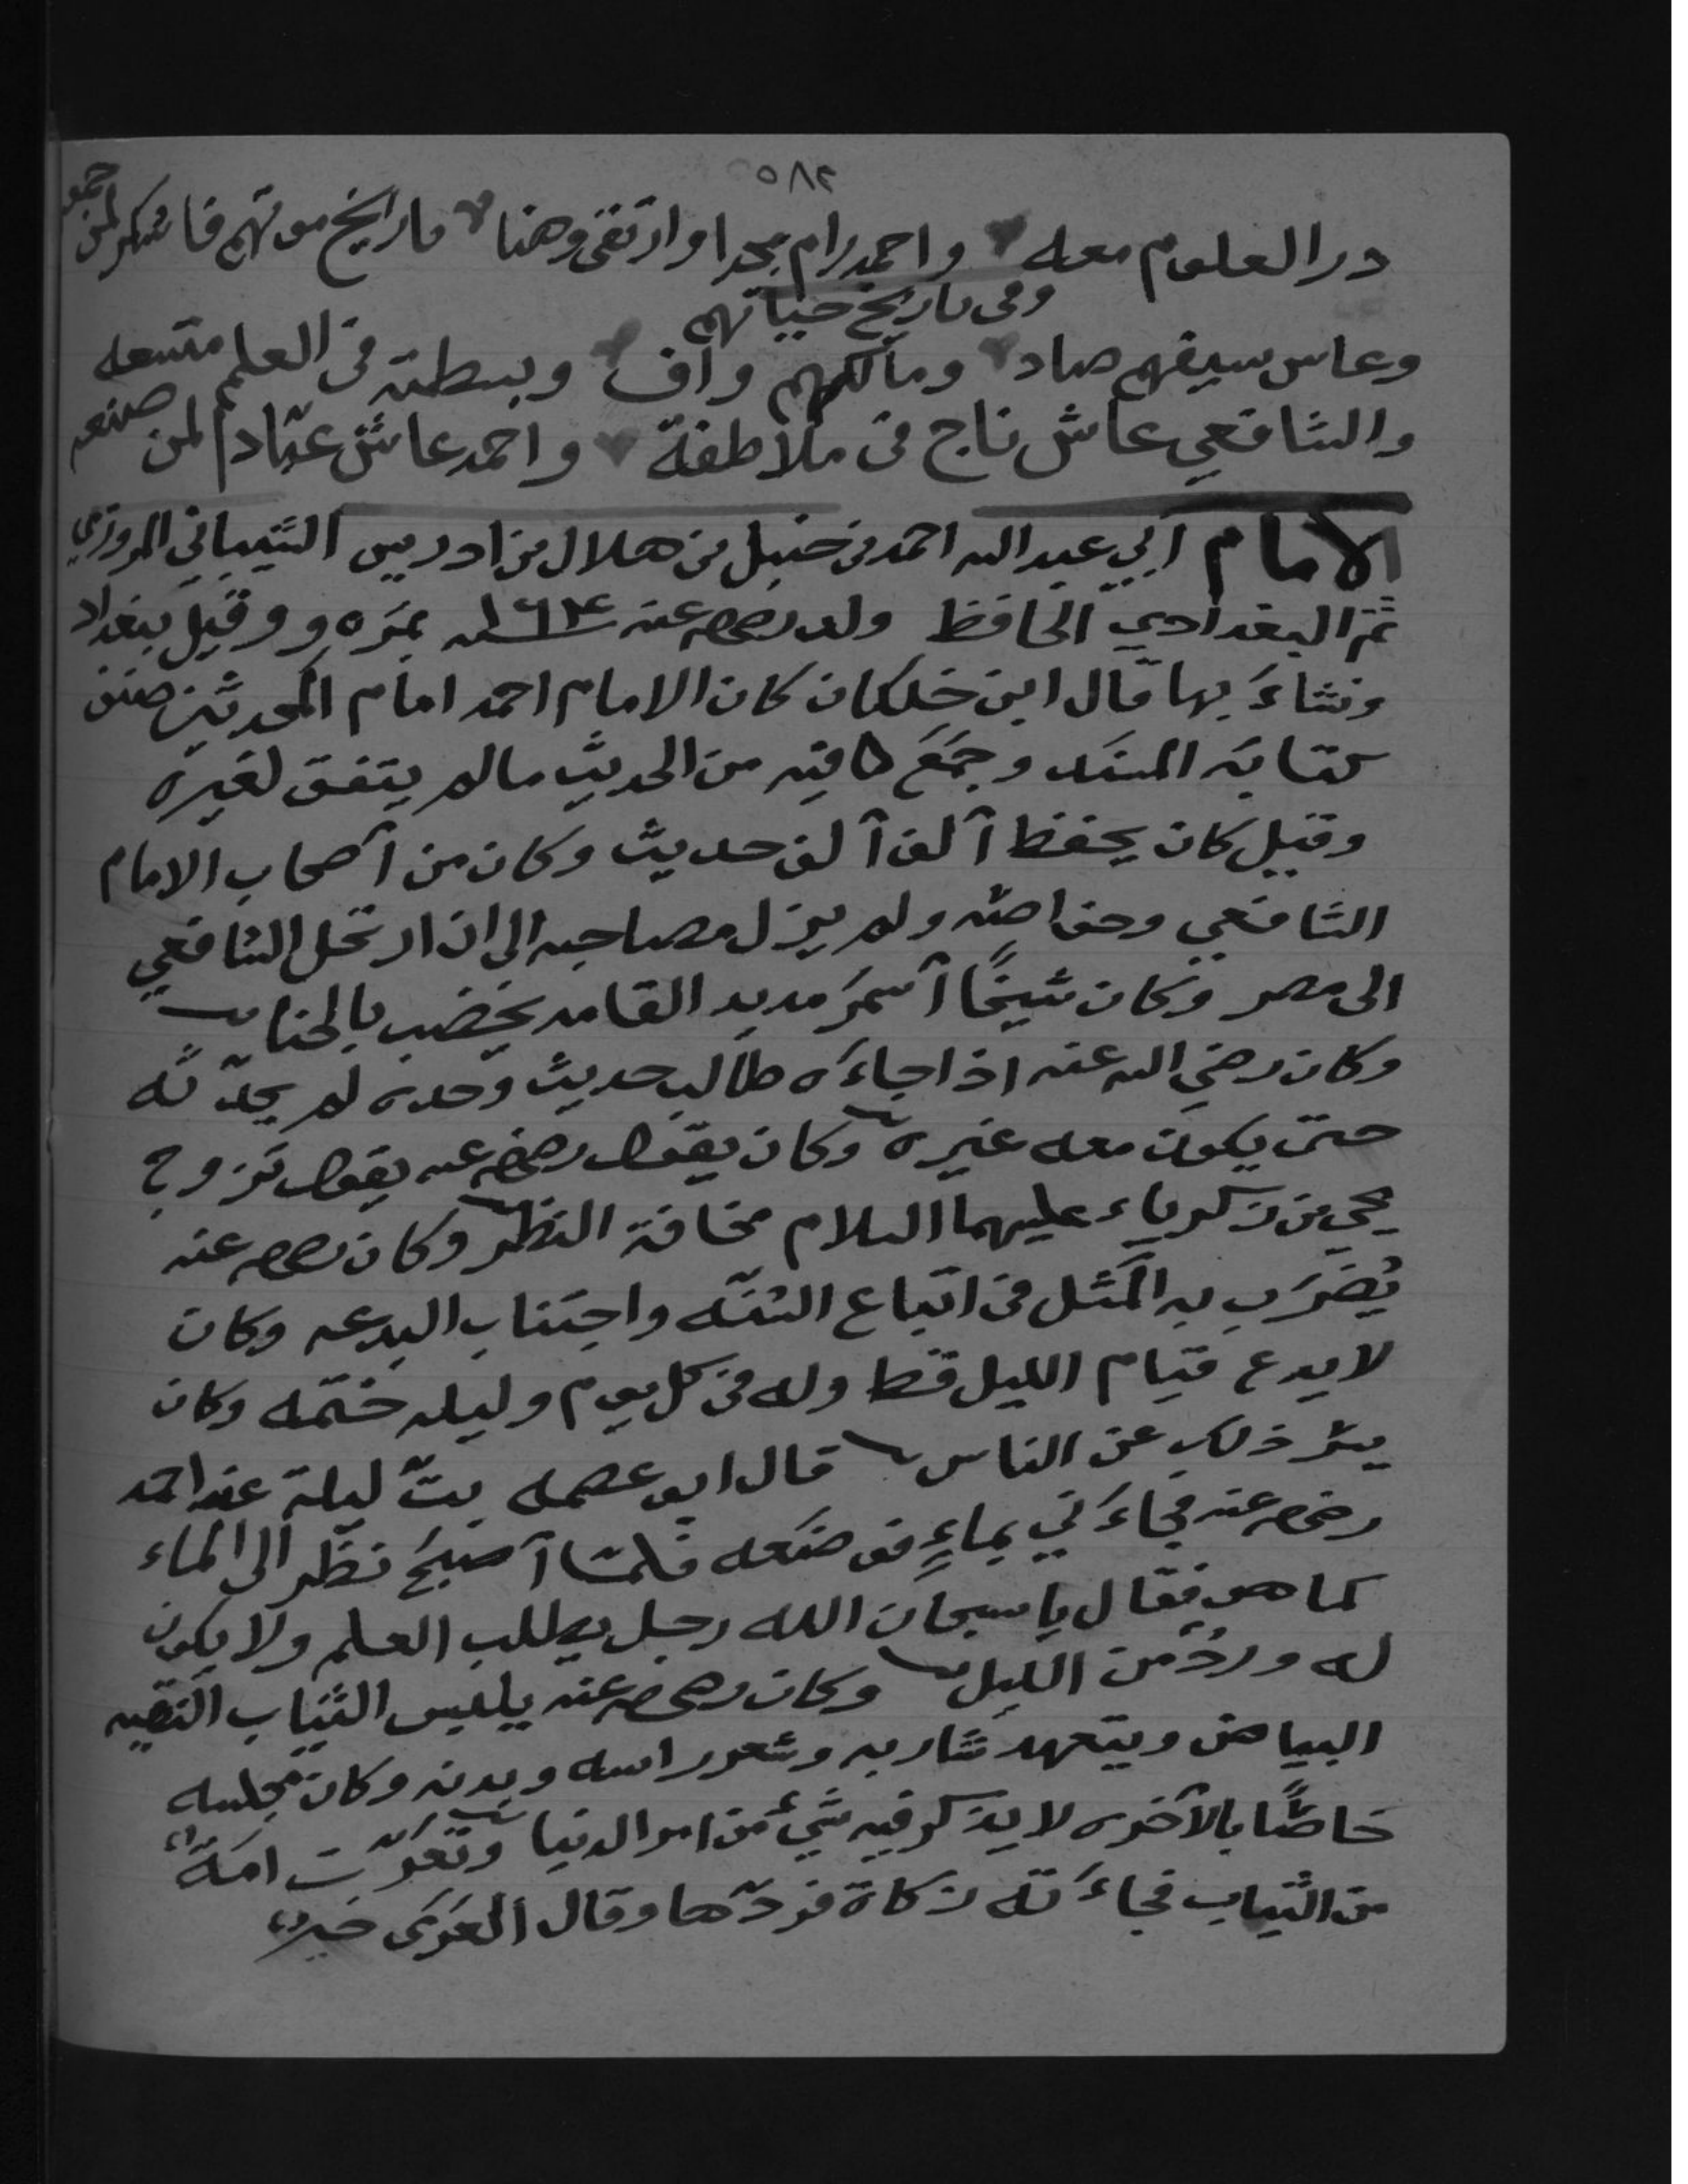 ٥٨٢
در العلوم معه واحمد رام مجدا وارتقى وهنا تاريخ موتهم فاشكر لمن جمعه
وفي تاريخ حياتهم
وعاس سيفهم صاد ومالكهم واف وبسطته في العلم متسعه
والشافعي عاش ناج في ملاطفة واحمد عاش عبّادا لمن صنعه
الامام أبي عبد الله احمد بن حنبل بن هلال بن ادريس الشيباني المروزي
ثم البغدادي الحافظ ولد رضي الله عنه ١٦٤ سنه بمَرْو وقيل ببغداد
ونشاءَ بها قال ابن خلكان كان الامام احمد امام المحدثين صنف
كتابه المسنَد وجمَعَ فيه من الحديث مالم يتفق لغيره
وقيل كان يحفظ ألف ألف حديث وكان من أصحاب الامام
الشافعي وخواصه ولم يزل مصاحبه الى ان ارتحل الشافعي
الى مصر وكان شيخًا أسمرَ مديد القامه يخضب بالحنا
وكان رضي الله عنه اذا جاءَه طالب حديث وحده لم يحدّثه
حتى يكون معه غيره وكان يقول رضي الله عنه يقول تزوج
يحي بن زكرياء عليهما السلام مخافة النظر وكان رضي الله عنه
يُضرَب به المَثل في اتباع السنّه واجتناب البدعه وكان
لا يدع قيام الليل قط وله في كل يوم وليله ختمه وكان
يسرّ ذلك عن الناس قال ابو عصمه بتّ ليلة عند احمد
رضي الله عنه فجاءَني بماءٍ فوضعه فلمّا أصبحَ نظر الى الماء
كما هو فقال يا سبحان الله رجل يطلب العلم ولا يكون
له وردٌ من الليل وكان رضي الله عنه يلبس الثياب النقيه
البياض ويتعهد شاربه وشعور راسه وبدنه وكان مجلسه
خاصًا بالآخره لا يذكر فيه شيءٌ من امر الدنيا وتعرّت امّهُ
من الثياب فجاءَته زكاة فردّها وقال العَرَى خير